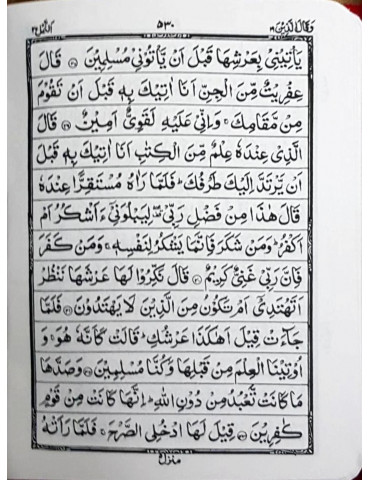 وقال الذين ١٩ ٥٣٠ النمل ٢٧
يَاْتِيْنِيْ بِعَرْشِهَا قَبْلَ اَنْ يَّاْتُوْنِيْ مُسْلِمِيْنَ ۝٣٨ قَالَ
عِفْرِيْتٌ مِّنَ الْجِنِّ اَنَا اٰتِيْكَ بِهٖ قَبْلَ اَنْ تَقُوْمَ
مِنْ مَّقَامِكَ ۚ وَاِنِّيْ عَلَيْهِ لَقَوِيٌّ اَمِيْنٌ ۝٣٩ قَالَ
الَّذِيْ عِنْدَهٗ عِلْمٌ مِّنَ الْكِتٰبِ اَنَا اٰتِيْكَ بِهٖ قَبْلَ
اَنْ يَّرْتَدَّ اِلَيْكَ طَرْفُكَ ؕ فَلَمَّا رَاٰهُ مُسْتَقِرًّا عِنْدَهٗ
قَالَ هٰذَا مِنْ فَضْلِ رَبِّيْ ۖ لِيَبْلُوَنِيْٓ ءَاَشْكُرُ اَمْ
اَكْفُرُ ؕ وَمَنْ شَكَرَ فَاِنَّمَا يَشْكُرُ لِنَفْسِهٖ ۚ وَمَنْ كَفَرَ
فَاِنَّ رَبِّيْ غَنِيٌّ كَرِيْمٌ ۝٤٠ قَالَ نَكِّرُوْا لَهَا عَرْشَهَا نَنْظُرْ
اَتَهْتَدِيْٓ اَمْ تَكُوْنُ مِنَ الَّذِيْنَ لَا يَهْتَدُوْنَ ۝٤١ فَلَمَّا
جَآءَتْ قِيْلَ اَهٰكَذَا عَرْشُكِ ؕ قَالَتْ كَاَنَّهٗ هُوَ ۚ وَ
اُوْتِيْنَا الْعِلْمَ مِنْ قَبْلِهَا وَكُنَّا مُسْلِمِيْنَ ۝٤٢ وَصَدَّهَا
مَا كَانَتْ تَّعْبُدُ مِنْ دُوْنِ اللّٰهِ ؕ اِنَّهَا كَانَتْ مِنْ قَوْمٍ
كٰفِرِيْنَ ۝٤٣ قِيْلَ لَهَا ادْخُلِي الصَّرْحَ ۚ فَلَمَّا رَاَتْهُ
منزل ٥